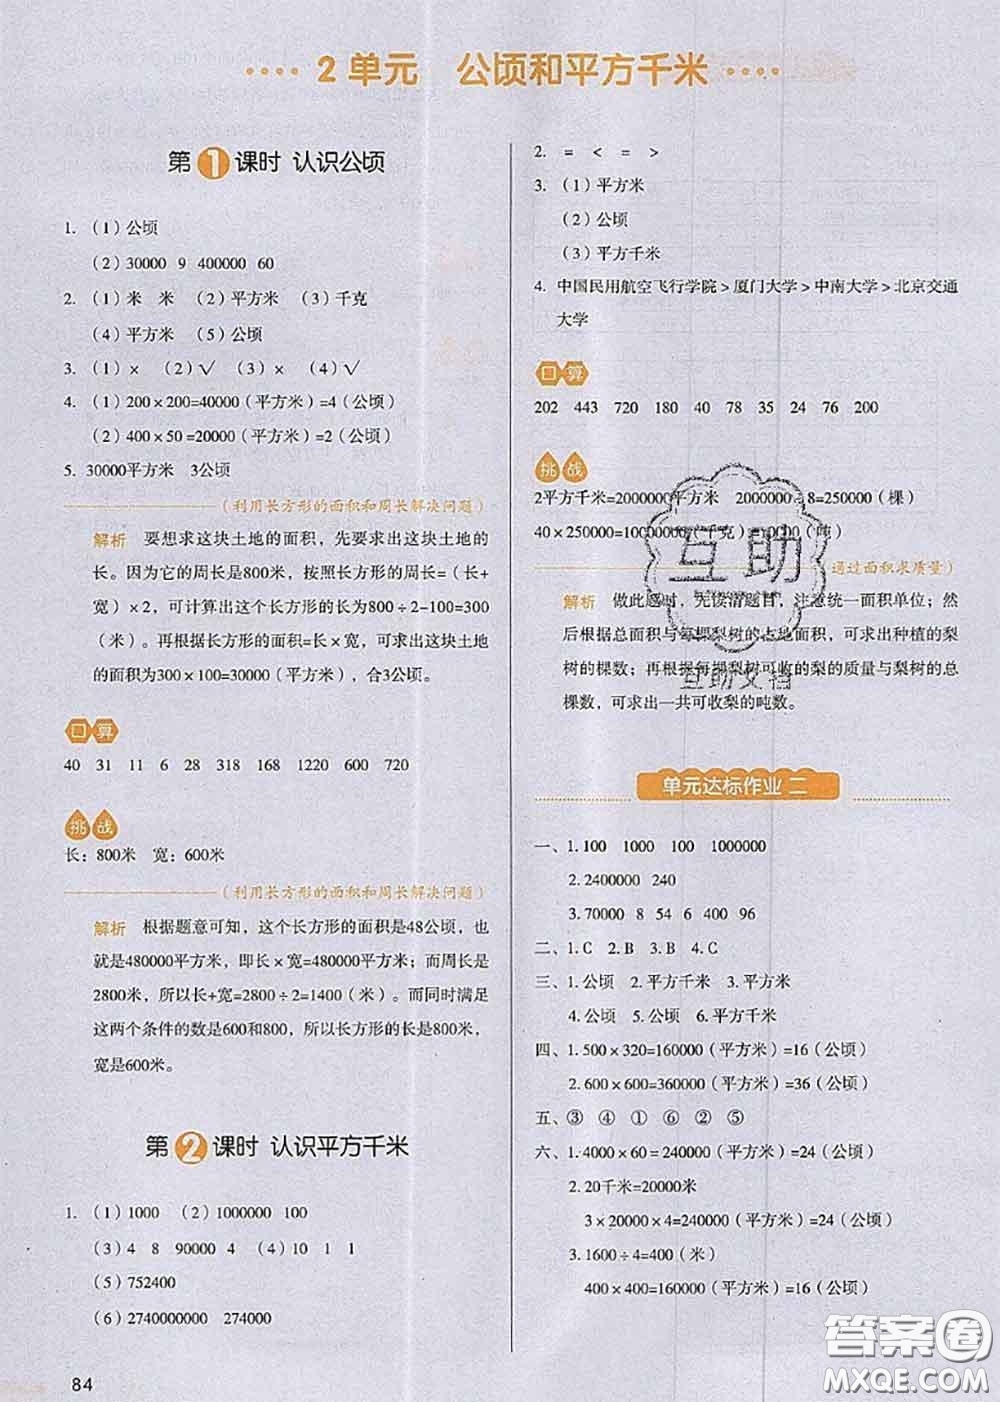 2 单元 公顷和平方千米
第 1 课时 认识公顷
1. (1)公顷
(2)30000 9 400000 60
2. (1)米 米 (2)平方米 (3)千克
(4)平方米 (5)公顷
3. (1)× (2)√ (3)× (4)√
4. (1)200×200=40000(平方米)=4(公顷)
(2)400×50=20000(平方米)=2(公顷)
5. 30000平方米 3公顷
(利用长方形的面积和周长解决问题)
解析 要想求这块土地的面积，先要求出这块土地的
长。因为它的周长是800米，按照长方形的周长=(长+
宽)×2，可计算出这个长方形的长为800÷2-100=300
(米)。再根据长方形的面积=长×宽，可求出这块土地
的面积为300×100=30000(平方米)，合3公顷。
口算
40 31 11 6 28 318 168 1220 600 720
挑战
长：800米 宽：600米
(利用长方形的面积和周长解决问题)
解析 根据题意可知，这个长方形的面积是48公顷，也
就是480000平方米，即长×宽=480000平方米；而周长是
2800米，所以长+宽=2800÷2=1400(米)。而同时满足
这两个条件的数是600和800，所以长方形的长是800米，
宽是600米。
第 2 课时 认识平方千米
1. (1)1000 (2)1000000 100
(3)4 8 90000 4 (4)10 1 1
(5)752400
(6)2740000000 274000
84
2. = < = >
3. (1)平方米
(2)公顷
(3)平方千米
4. 中国民用航空飞行学院>厦门大学>中南大学>北京交通
大学
口算
202 443 720 180 40 78 35 24 76 200
挑战
2平方千米=2000000平方米 2000000÷8=250000(棵)
40×250000=10000000(千克)=10000(吨)
(通过面积求质量)
解析 做此题时，先读清题目，注意统一面积单位；然
后根据总面积与每棵梨树的占地面积，可求出种植的梨
树的棵数；再根据每棵梨树可收的梨的质量与梨树的总
棵数，可求出一共可收梨的吨数。
互助
互助文档
单元达标作业 二
一、1.100 1000 100 1000000
2.2400000 240
3.70000 8 54 6 400 96
二、1.C 2.B 3.B 4.C
三、1.公顷 2.平方千米 3.平方米
4.公顷 5.公顷 6.平方千米
四、1.500×320=160000(平方米)=16(公顷)
2.600×600=360000(平方米)=36(公顷)
五、③ ④ ① ⑥ ② ⑤
六、1.4000×60=240000(平方米)=24(公顷)
2.20千米=20000米
3×20000×4=240000(平方米)=24(公顷)
3.1600÷4=400(米)
400×400=160000(平方米)=16(公顷)
答案圈
MXQE.COM